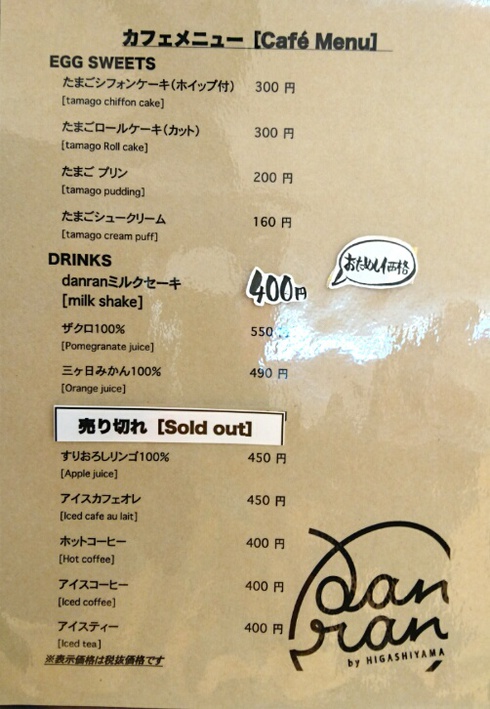 カフェメニュー [Café Menu]
EGG SWEETS
たまごシフォンケーキ(ホイップ付) 300 円
[tamago chiffon cake]
たまごロールケーキ(カット) 300 円
[tamago Roll cake]
たまご プリン 200 円
[tamago pudding]
たまごシュークリーム 160 円
[tamago cream puff]
DRINKS
danranミルクセーキ 400円 おためし価格
[milk shake]
ザクロ100% 550 円
[Pomegranate juice]
三ヶ日みかん100% 490 円
[Orange juice]
売り切れ [Sold out]
すりおろしリンゴ100% 450 円
[Apple juice]
アイスカフェオレ 450 円
[Iced cafe au lait]
ホットコーヒー 400 円
[Hot coffee]
アイスコーヒー 400 円
[Iced coffee]
アイスティー 400 円
[Iced tea]
※表示価格は税抜価格です
dan
ran
by HIGASHIYAMA